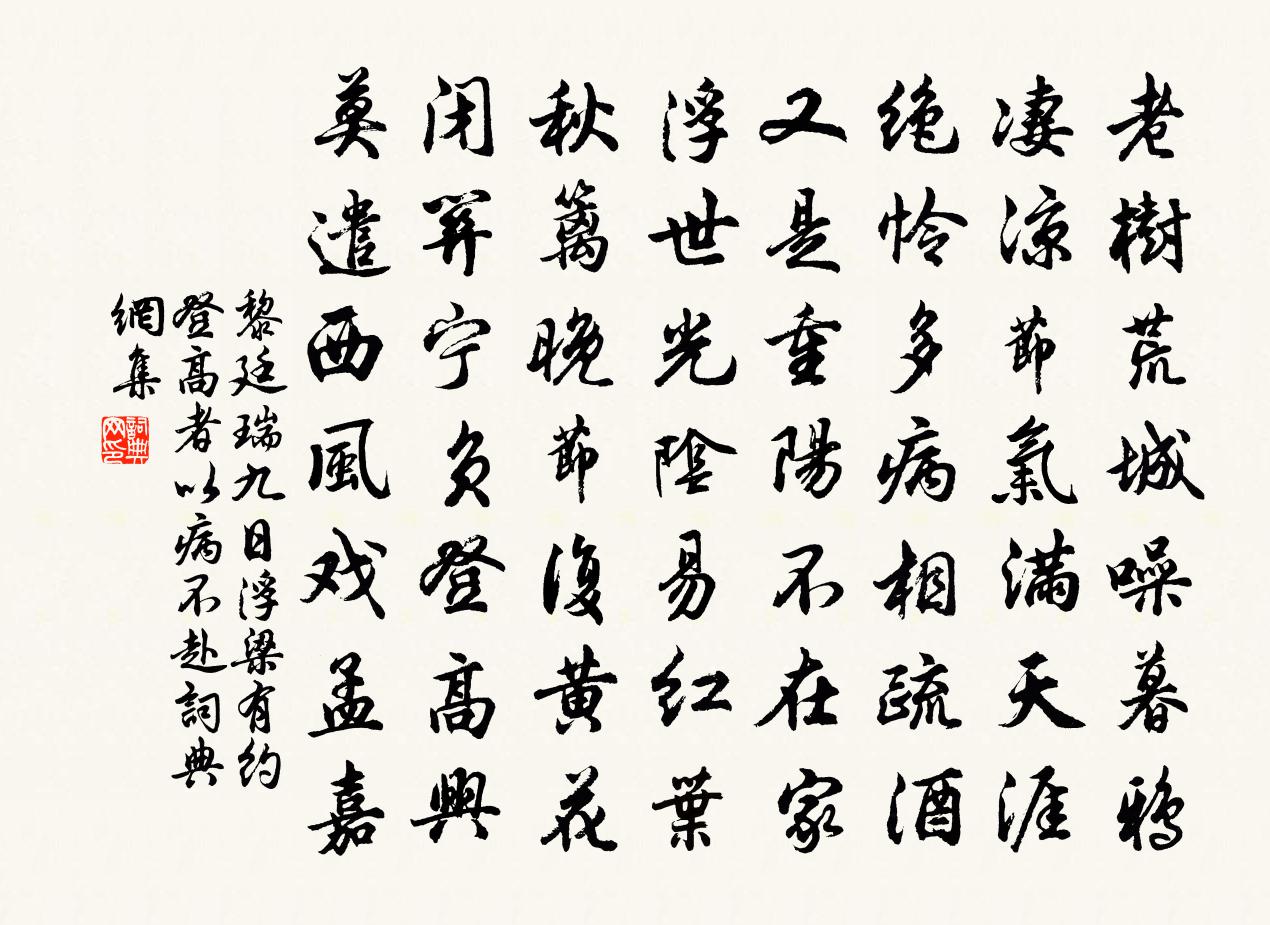 老樹荒城噪暮鴉
凄涼節氣滿天涯
绝怜多病相疏酒
又是重陽不在家
浮世光陰易红葉
秋篱晚節復黄花
闭門宁负登高興
莫遣西風戏孟嘉
黎廷瑞九日浮梁有约
登高者以病不赴詞典
網集
詞典網印